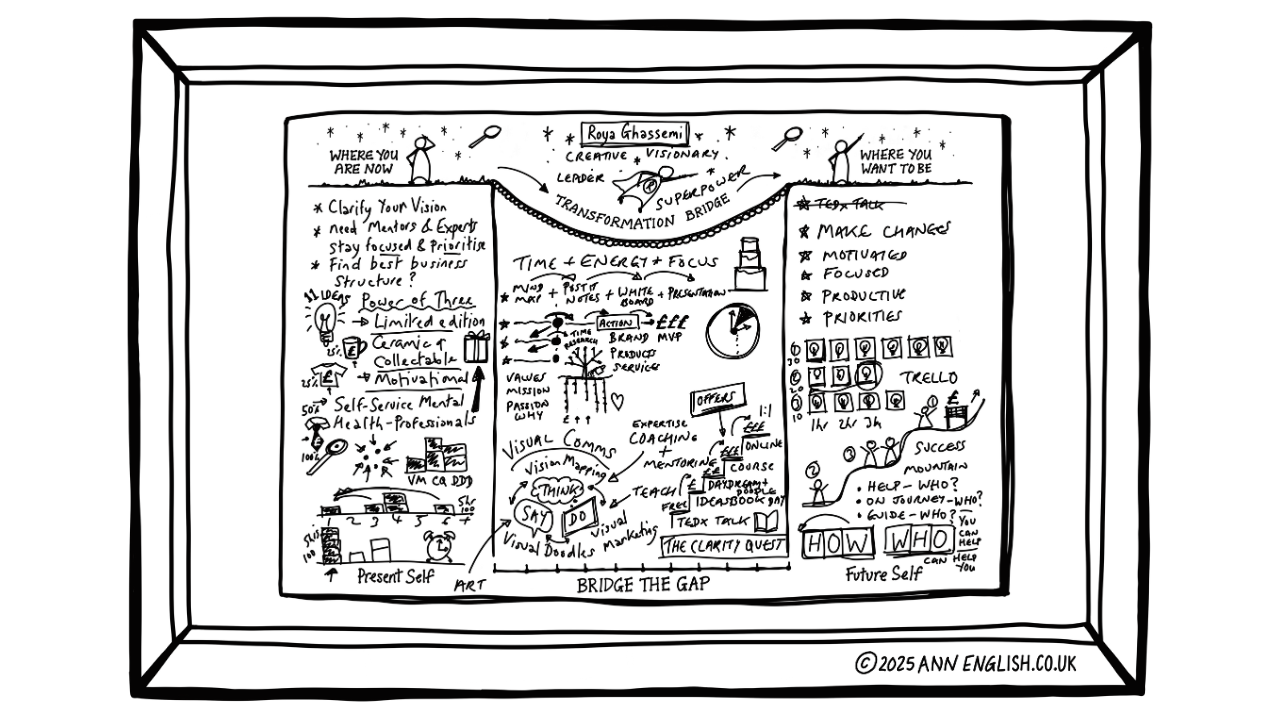 Roya Ghassemi
CREATIVE VISIONARY
LEADER
SUPERPOWER
TRANSFORMATION BRIDGE
WHERE YOU
ARE NOW
* Clarify Your Vision
* need Mentors & Experts
stay focused & Prioritise
* Find best business
Structure?
11 IDEAS
Power of Three
→ Limited edition
Ceramic &
Collectable
25%
£
→ Motivational
25%
£
50%
→ Self-Service Mental
Health-Professionals
100%
VM CQ DDD
1 2 3 4 5 6 7
Present Self
ART
TIME + ENERGY + FOCUS
MIND
MAP
+ POST IT
NOTES
+ WHITE
BOARD
+ PRESENTATION
TIME
RESEARCH
ACTION
→ £££
BRAND MVP
PRODUCTS
SERVICES
VALUES
MISSION
PASSION
WHY
OFFERS
1:1
£££
ONLINE
£££
COURSE
££
DAYDREAM +
DOODLE
DAY
£
IDEASBOOK
FREE
TEDX TALK
THE CLARITY QUEST
EXPERTISE
COACHING
+
MENTORING
TEACH
VISUAL COMMS
Vision Mapping
THINK
SAY
DO
Visual Doodles
Visual
Marketing
BRIDGE THE GAP
WHERE YOU
WANT TO BE
TEDx TALK
MAKE CHANGES
MOTIVATED
FOCUSED
PRODUCTIVE
PRIORITIES
1
30
2
20
3
10
TRELLO
1hr 2hr 3h
1
£
3
2
SUCCESS
MOUNTAIN
• HELP - WHO?
• ON JOURNEY - WHO?
• GUIDE - WHO?
HOW WHO
YOU
CAN
HELP
CAN HELP
YOU
Future Self
© 2025 ANN ENGLISH.CO.UK